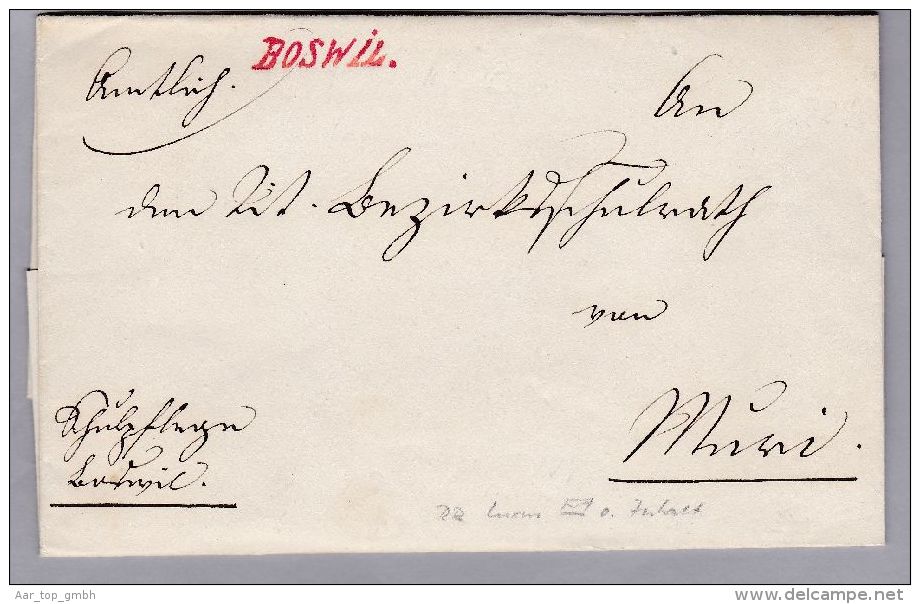 BOSWIL.
Amtlich.
An
den Tit. Bezirksschulrath
von
Muri.
Schulpflege
Boswil.
o. Inhalt
Aar_top_gmbh
www.delcampe.net